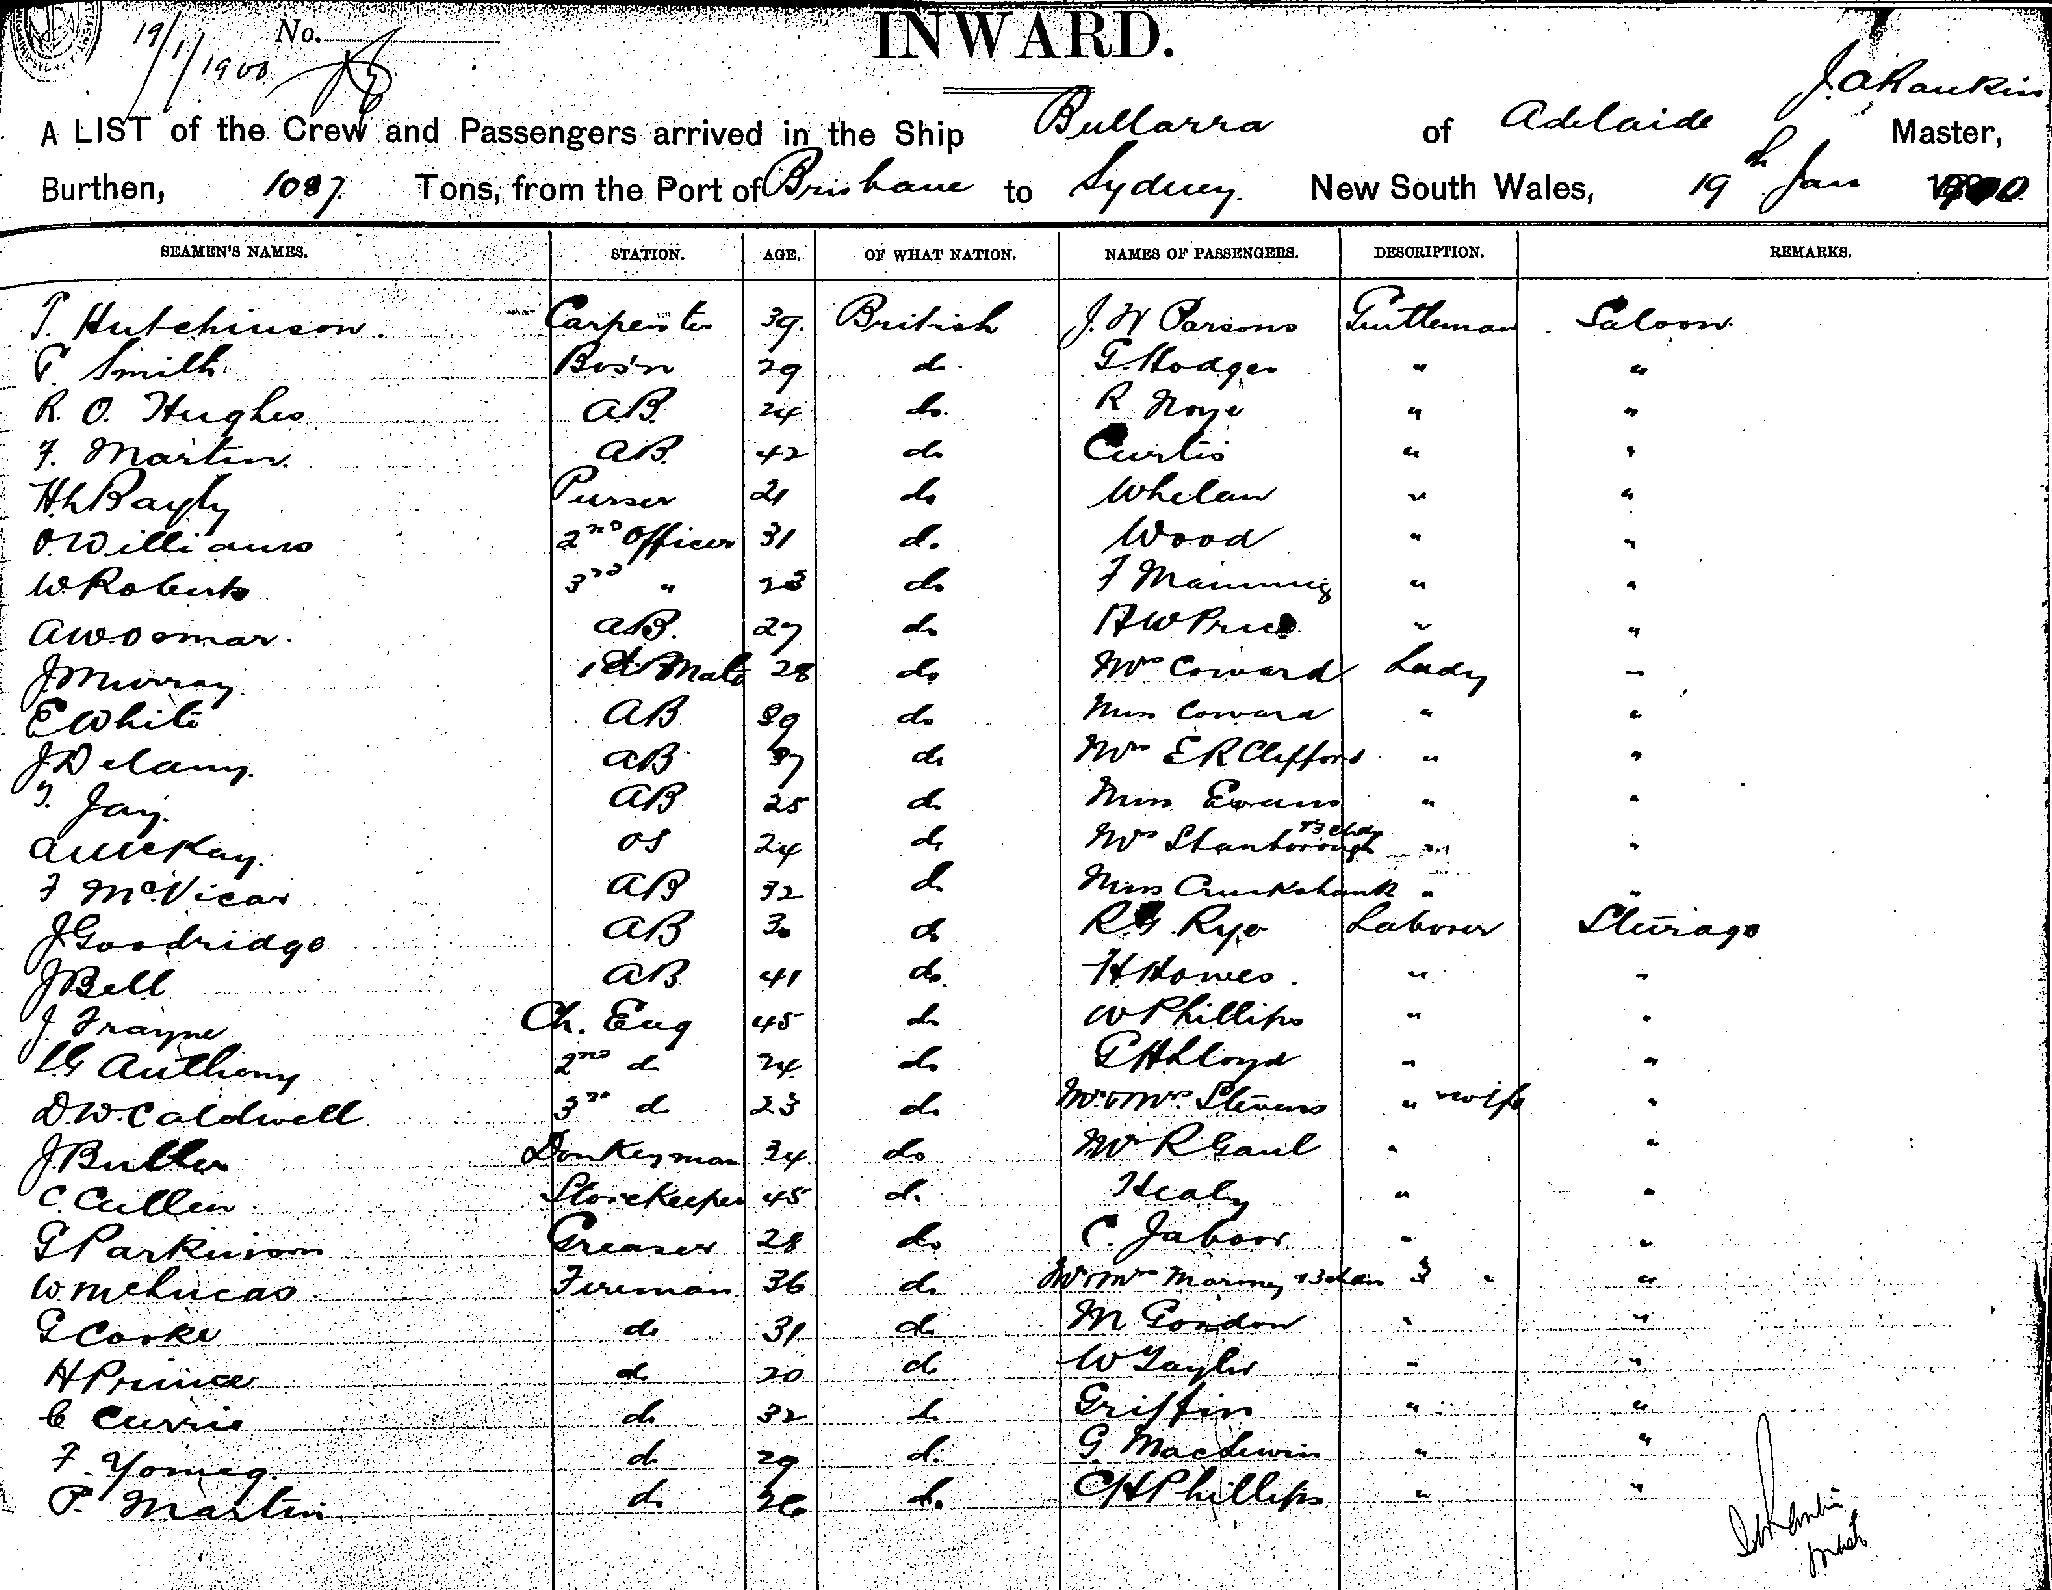 19/1/1900 No.
INWARD.
J. A Rankin
A LIST of the Crew and Passengers arrived in the Ship Bullarra of Adelaide Master,
Burthen, 1087 Tons, from the Port of Brisbane to Sydney. New South Wales, 19th Jan 1900
SEAMEN'S NAMES. STATION. AGE. OF WHAT NATION. NAMES OF PASSENGERS. DESCRIPTION. REMARKS.
T. Hutchinson. Carpenter 39. British J. W Parsons Gentleman Saloon
P. Smith Bos'n 29 do G. Hodges " "
R. O. Hughes AB. 24 do. R Noye " "
F. Martin. AB. 42 do Curtis " "
H L Bayly Purser 21 do Whelan " "
O. Williams 2nd Officer 31 do Wood " "
W Roberts 3rd " 23 do F Manning " "
A W Osmar. AB. 27 do H W Price " "
J Murray. 1st Mate 28 do Mrs Coward Lady "
E White AB 39 do Miss Coward " "
J Delany. AB 37 do Mrs E R Clifford " "
T. Jay. AB 25 do Miss Evans " "
A McKay. OS 24 do Mrs Stanborough & 3 chdn " "
F McVicar AB 32 do Miss Cruckshank " "
J Goodridge AB 30 do R G Rye Labourer Steerage
J Bell AB 41 do. H Howes. " "
J. Frayne Ch. Eng 45 do W Phillips " "
G Anthony 2nd do 24 do G H Lloyd " "
D. W. Caldwell 3rd do 23 do Mr & Mrs Stevens " & wife "
J Butler Donkeyman 34 do Mr R Gaul " "
C. Cullen Storekeeper 45 do. Healy " "
G Parkinson Greaser 28 do C. Jaboor " "
W. McLucas Fireman 36 do Mr & Mrs Maroney & 3 chdn 3 " "
G Cooke do 31 do M Gordon " "
H Prince do 20 do W Taylor " "
C Currie do 32 do Griffin " "
F. Young. do 29 do G. MacLewin " "
P. Martin do 26 do C H Phillips " "
J A Rankin